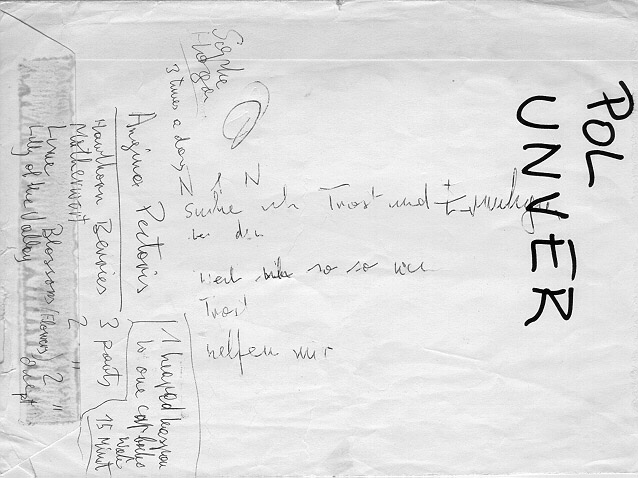 POL
UNVER
Sophie
3 times a day
Angina Pectoris
Hawthorn Berries 3 parts
Motherwort 2 "
Lime Blossoms (Flowers) 2 "
Lilly of the Valley
1 heaped teaspoon
to one cup boiled
Wate
15 Minut
Suche ich Trost und
bei den
weil so so
Trost
helfen mir